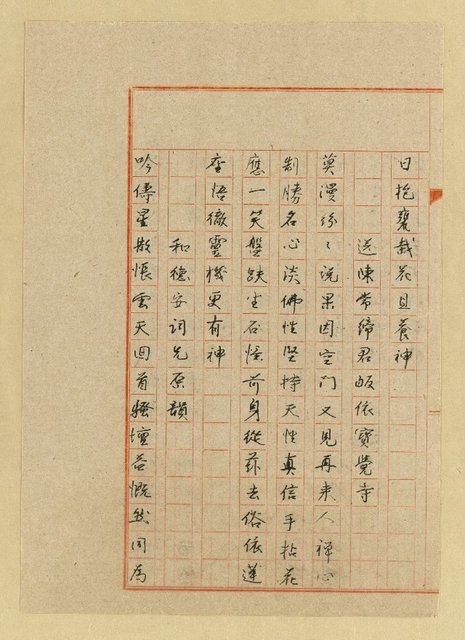 日抱甕栽花且養神
送陳常締君皈依寶覺寺
莫漫紛〻說果因空門又見再來人禪心
制勝名心淡佛性堅持天性真信手拈花
應一笑盤趺坐石悟前身從茲去俗依蓮
座悟徹靈機更有神
和德安詞兄原韻
吟儔星散悵雲天回首騷壇益慨然同為